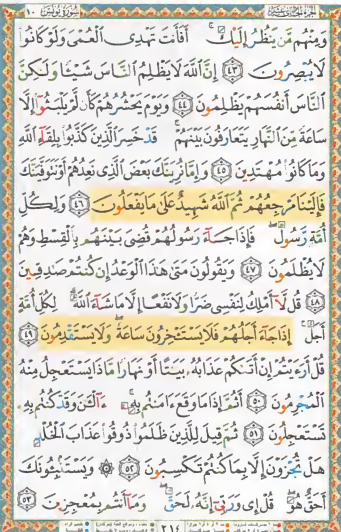 الجزء الحادي عشر سورة يونس ١٠
وَمِنْهُم مَّن يَنظُرُ إِلَيْكَ ۚ أَفَأَنتَ تَهْدِى الْعُمْىَ وَلَوْ كَانُوا۟
لَا يُبْصِرُونَ ٤٣ إِنَّ اللَّهَ لَا يَظْلِمُ النَّاسَ شَيْـًٔا وَلَٰكِنَّ
النَّاسَ أَنفُسَهُمْ يَظْلِمُونَ ٤٤ وَيَوْمَ يَحْشُرُهُمْ كَأَن لَّمْ يَلْبَثُوٓا۟ إِلَّا
سَاعَةً مِّنَ النَّهَارِ يَتَعَارَفُونَ بَيْنَهُمْ ۚ قَدْ خَسِرَ الَّذِينَ كَذَّبُوا۟ بِلِقَآءِ اللَّهِ
وَمَا كَانُوا۟ مُهْتَدِينَ ٤٥ وَإِمَّا نُرِيَنَّكَ بَعْضَ الَّذِى نَعِدُهُمْ أَوْ نَتَوَفَّيَنَّكَ
فَإِلَيْنَا مَرْجِعُهُمْ ثُمَّ اللَّهُ شَهِيدٌ عَلَىٰ مَا يَفْعَلُونَ ٤٦ وَلِكُلِّ
أُمَّةٍ رَّسُولٌ ۖ فَإِذَا جَآءَ رَسُولُهُمْ قُضِىَ بَيْنَهُم بِالْقِسْطِ وَهُمْ
لَا يُظْلَمُونَ ٤٧ وَيَقُولُونَ مَتَىٰ هَٰذَا الْوَعْدُ إِن كُنتُمْ صَٰدِقِينَ
٤٨ قُل لَّآ أَمْلِكُ لِنَفْسِى ضَرًّا وَلَا نَفْعًا إِلَّا مَا شَآءَ اللَّهُ ۗ لِكُلِّ أُمَّةٍ
أَجَلٌ ۚ إِذَا جَآءَ أَجَلُهُمْ فَلَا يَسْتَـْٔخِرُونَ سَاعَةً ۖ وَلَا يَسْتَقْدِمُونَ ٤٩
قُلْ أَرَءَيْتُمْ إِنْ أَتَىٰكُمْ عَذَابُهُۥ بَيَٰتًا أَوْ نَهَارًا مَّاذَا يَسْتَعْجِلُ مِنْهُ
الْمُجْرِمُونَ ٥٠ أَثُمَّ إِذَا مَا وَقَعَ ءَامَنتُم بِهِۦٓ ۚ ءَآلْـَٰٔنَ وَقَدْ كُنتُم بِهِۦ
تَسْتَعْجِلُونَ ٥١ ثُمَّ قِيلَ لِلَّذِينَ ظَلَمُوا۟ ذُوقُوا۟ عَذَابَ الْخُلْدِ
هَلْ تُجْزَوْنَ إِلَّا بِمَا كُنتُمْ تَكْسِبُونَ ٥٢ ۞ وَيَسْتَنۢبِـُٔونَكَ
أَحَقٌّ هُوَ ۖ قُلْ إِى وَرَبِّىٓ إِنَّهُۥ لَحَقٌّ ۖ وَمَآ أَنتُم بِمُعْجِزِينَ ٥٣
٢١٤